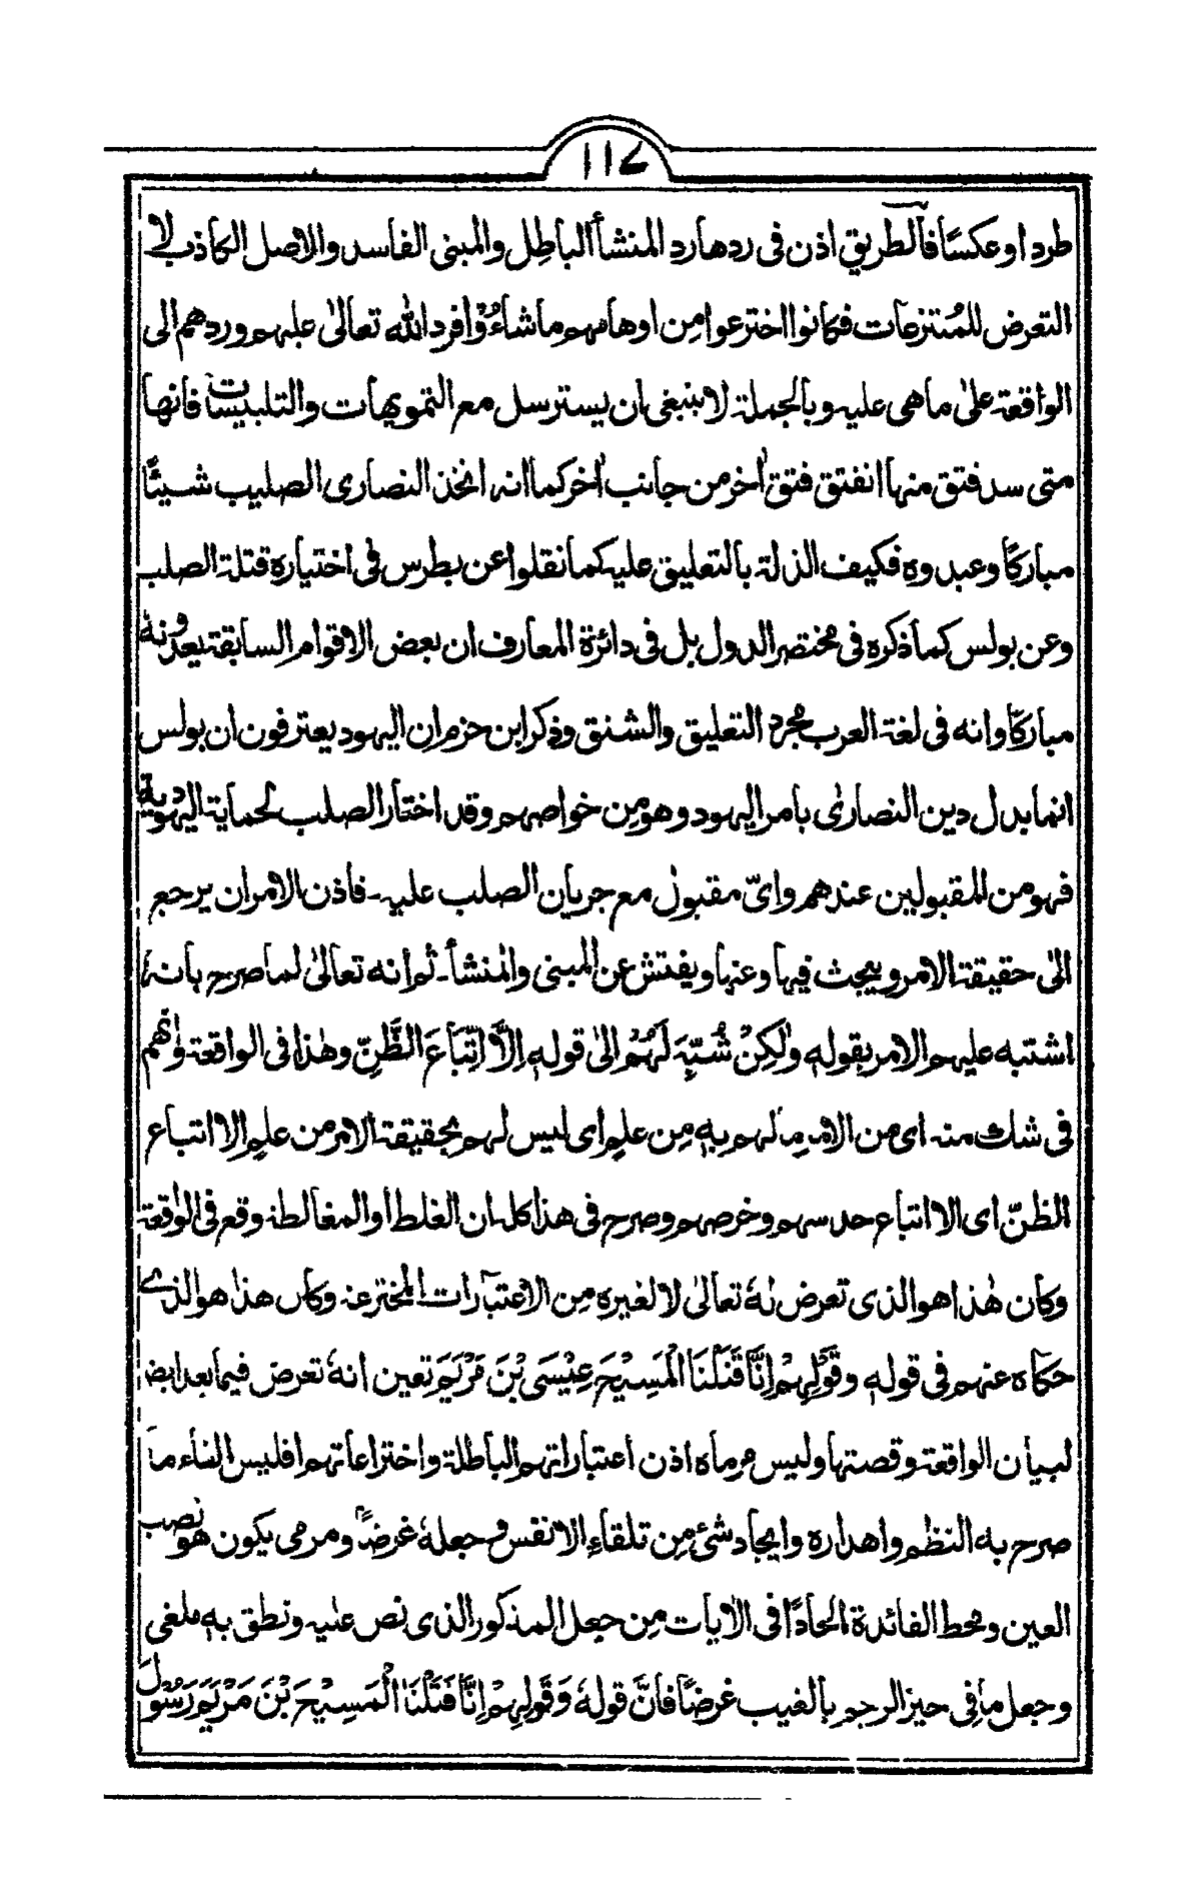 ١١٧
طرد او عكسًا فالطريق اذن فى ردها رد المنشأ الباطل والمبنى الفاسد والاصل الكاذب لا
التعرض للمُنتزعات فكانوا اخترعوا مِن اوهامهم ما شاءُوْا فرد الله تعالىٰ عليهم وردهم الى
الواقعة علىٰ ما هى عليه وبالجملة لا ينبغى ان يسترسل مع التمويهات والتلبيسات فانها
متى سد فتق منها انفتق فتق اٰخر من جانب اٰخر كما انه اتخذ النصارى الصليب شيئًا
مباركًا وعبدوه فكيف الذلة بالتعليق عليه كما نقلوا عن بطرس فى اختياره قتلة الصلب
وعن بولس كما ذكره فى مختصر الدول بل فى دائرة المعارف ان بعض الاقوام السابقة يعدونهٗ
مباركًا وانه فى لغة العرب مجرد التعليق والشنق وذكر ابن حزم ان اليهود يعترفون ان بولس
انما بدل دين النصارىٰ بامر اليهود وهو مِن خواصهم وقد اختار الصلب لحماية اليهودية
فهو من المقبولين عندهم واىّ مقبول مع جريان الصلب عليه۔ فاذن الامر ان يرجع
الىٰ حقيقة الامر ويبحث فيها وعنها ويفتش عن المبنى والمنشأ۔ ثم انه تعالىٰ لما صرح بانهٗ
اشتبه عليهم الامر بقولهٖ وَلٰكِنْ شُبِّهَ لَهُمْ الىٰ قولهٖ اِلَّا اتِّبَاعَ الظَّنِّ وهٰذا فى الواقعة وانهم
فى شك منه اى من الامر ما لهم بهٖ مِن علمٍ اى ليس لهم بحقيقة الامر من علمٍ الا اتباع
الظنّ اى الا اتباع حدسهم وخرصهم وصرح فى هذا كله ان الغلط او المغالطة وقع فى الواقعة
وكان هٰذا هو الذى تعرض لهٗ تعالىٰ لا لغيره مِن الاعتبارات المخترعة وكان هذا هو الذے
حكاه عنهم فى قولهٖ وقَوْلِهِمْ اِنَّا قَتَلْنَا الْمَسِيْحَ عِيْسَى بْنَ مَرْيَمَ تعين انهٗ تعرض فيما بعد ايضا
لبيان الواقعة وقصتها وليس مرماه اذن اعتباراتهم الباطلة واختراعاتهم افليس الغاء ما
صرح به النظم واهداره وايجاد شئ مِن تلقاءِ الانفس وجعلهٗ غرضًا ومرمى يكون هو نصب
العين ومحط الفائدة الحادًا فى الاٰيات مِن جعل المذكور الذى نص عليه ونطق بهٖ ملغى
وجعل ما فى حيز الرجم بالغيب غرضًا فانَّ قولهٗ وَقَوْلِهِمْ اِنَّا قَتَلْنَا الْمَسِيْحَ بْنَ مَرْيَمَ رَسُوْلَ